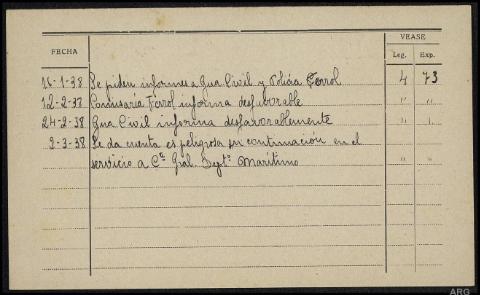 VEASE
FECHA Leg. Exp.
11-1-38 Se piden informes a Gua Civil y Policía Ferrol 4 73
12-2-38 Comisaria Ferrol informa desfaborable " "
24-2-38 Gua Civil informa desfavorablemente " "
2-3-38 Se da cuenta es peligrosa su continuación en el
servicio a Cte Gral. Deptº Marítimo " "
ARG